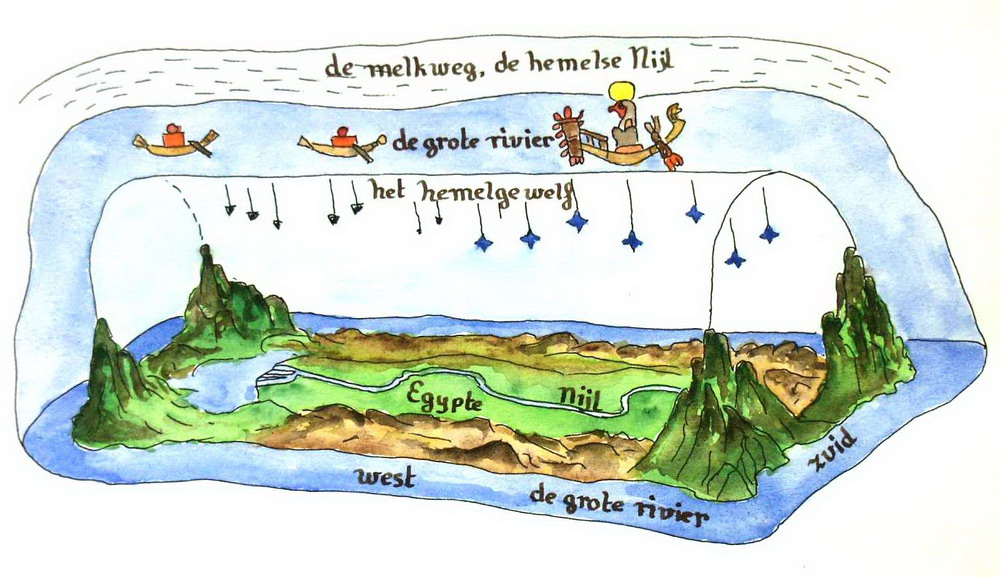 de melkweg, de hemelse Nijl
de grote rivier
het hemelgewelf
Egypte
Nijl
zuid
west
de grote rivier